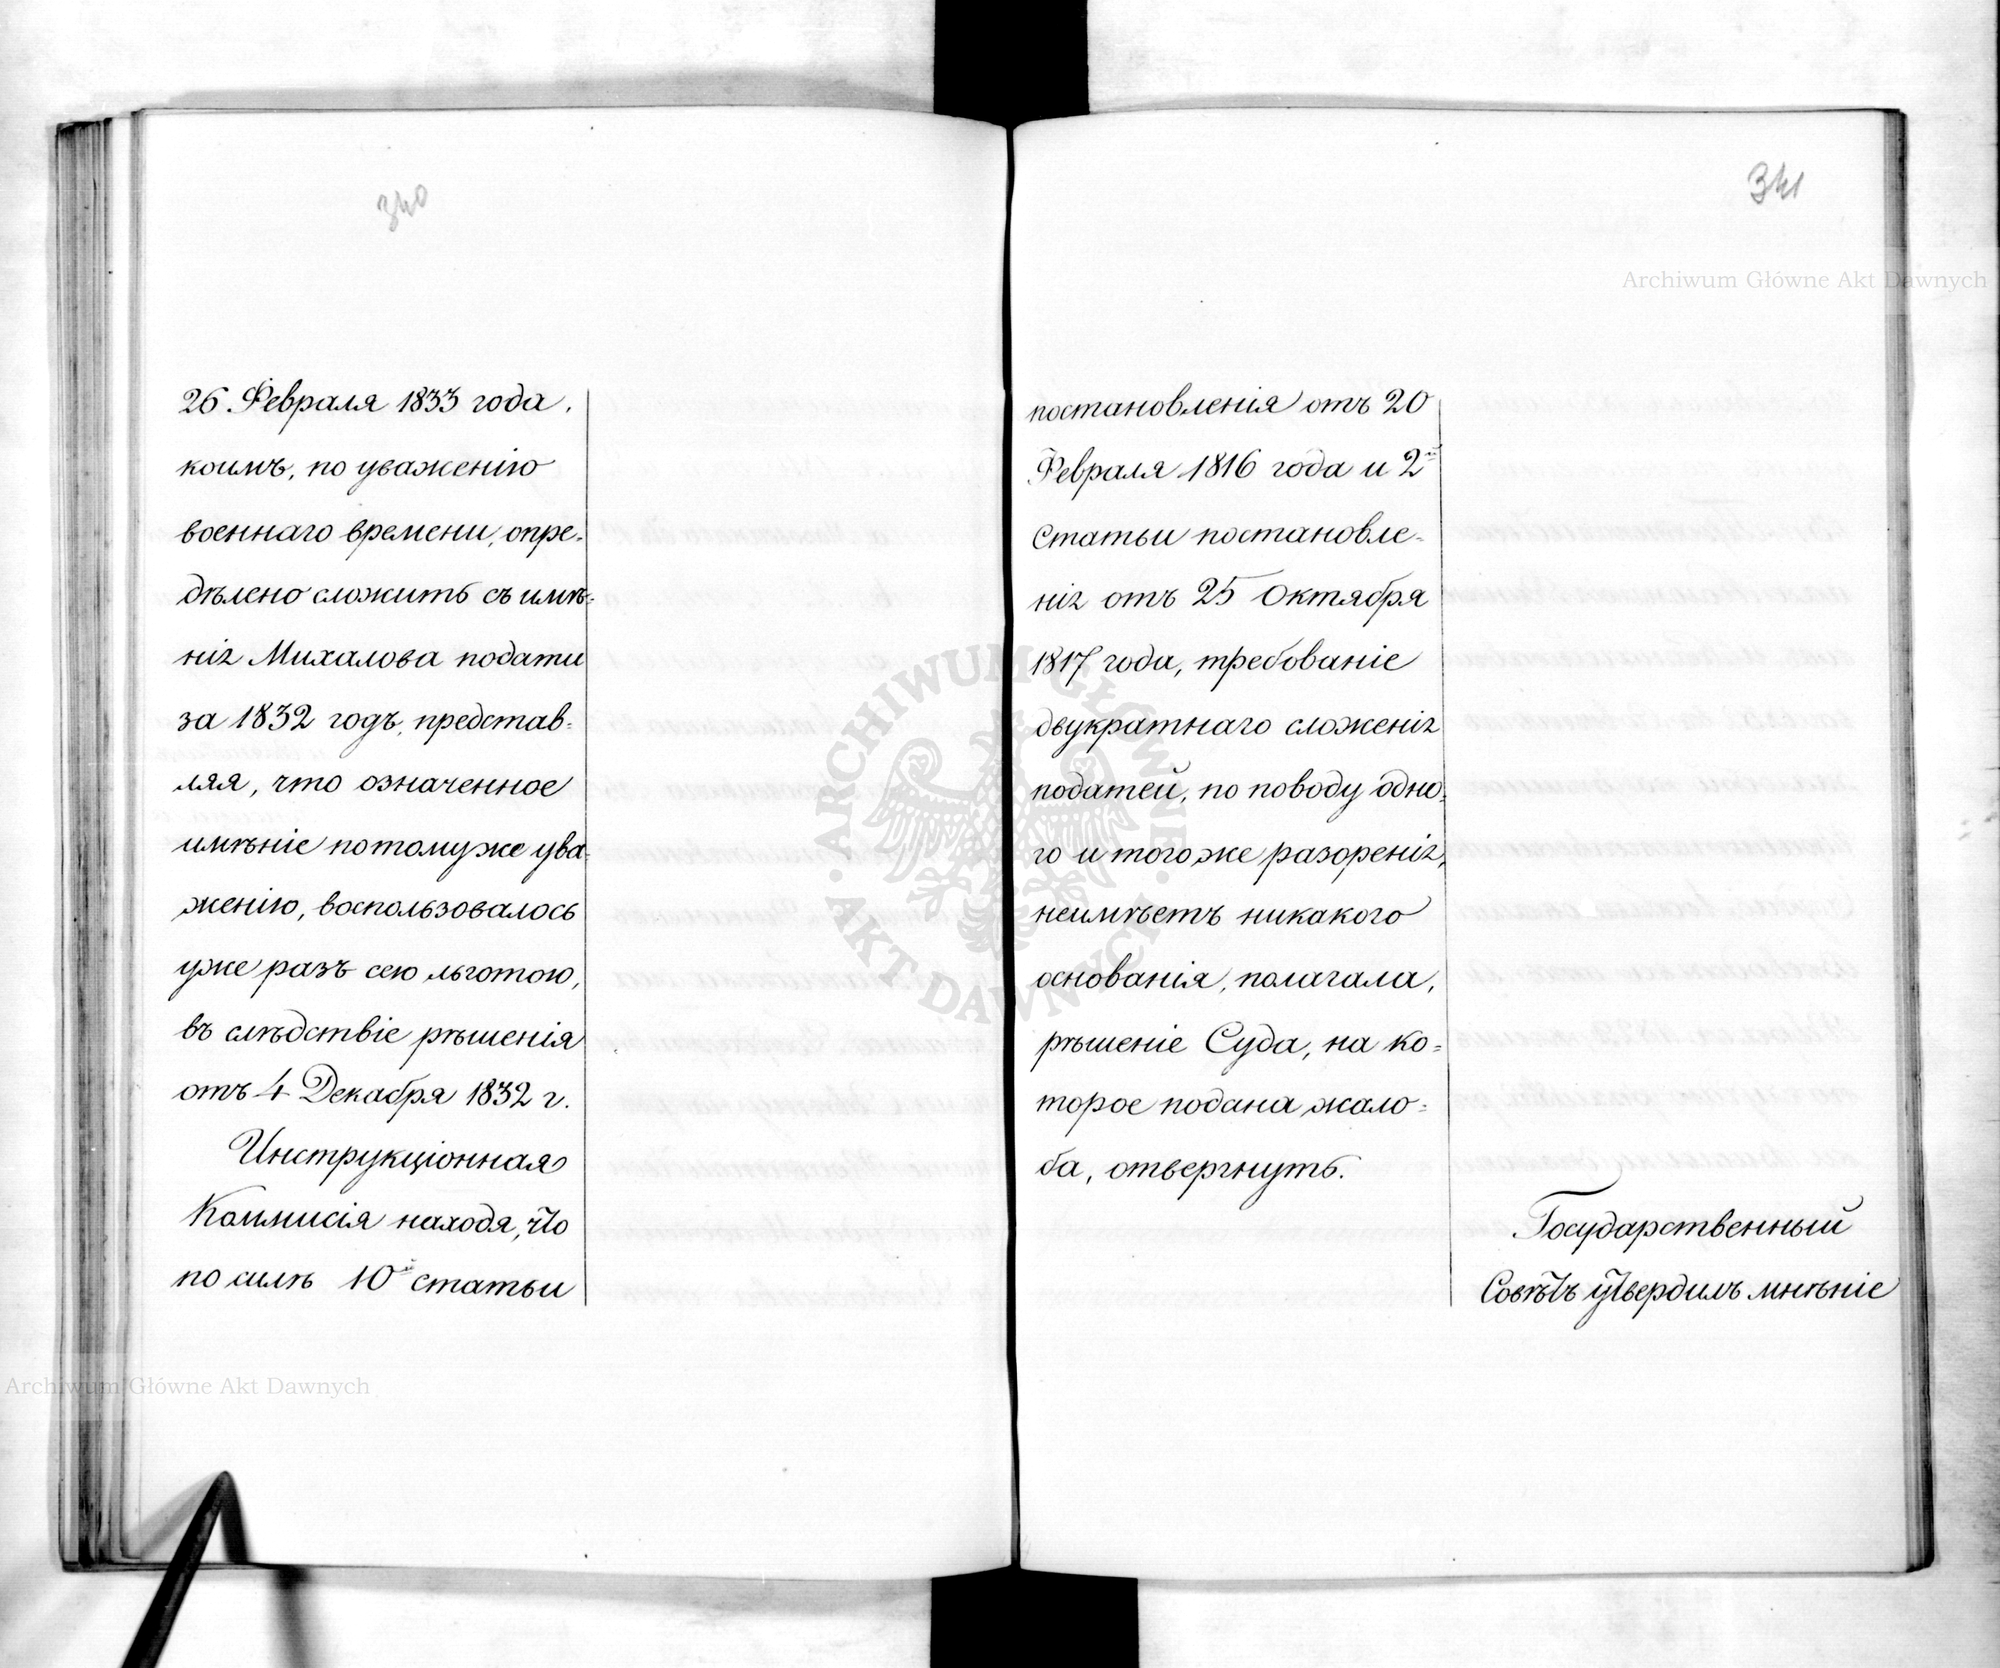 340
26 Февраля 1833 года,
коимъ, по уваженію
военнаго времени, опре-
дѣлено сложить съ имѣ-
нія Михалова подати
за 1832 годъ, представ-
ляя, что означенное
имѣніе потомуже ува-
женію, воспользовалось
уже разъ сею льготою,
въ слѣдствіе рѣшенія
отъ 4 Декабря 1832 г.
Инструкціонная
Коммисія находя, что
по силѣ 10й статьи
341
постановленія отъ 20
Февраля 1816 года и 2й
Статьи постановле-
нія отъ 25 Октября
1817 года, требованіе
двукратнаго сложенія
податей, по поводу одно-
го и тогоже разоренія,
неимѣетъ никакого
основанія, полагала,
рѣшеніе Суда, на ко-
торое подана жало-
ба, отвергнуть.
Государственный
Совѣтъ утвердилъ мнѣніе
Archiwum Główne Akt Dawnych
Archiwum Główne Akt Dawnych
ARCHIWUM GŁÓWNE
AKT DAWNYCH